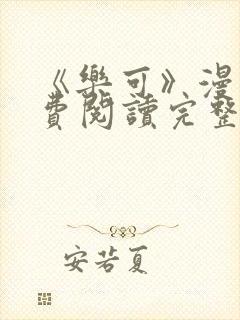 《樂可》漫
費閱讀完整
安若夏